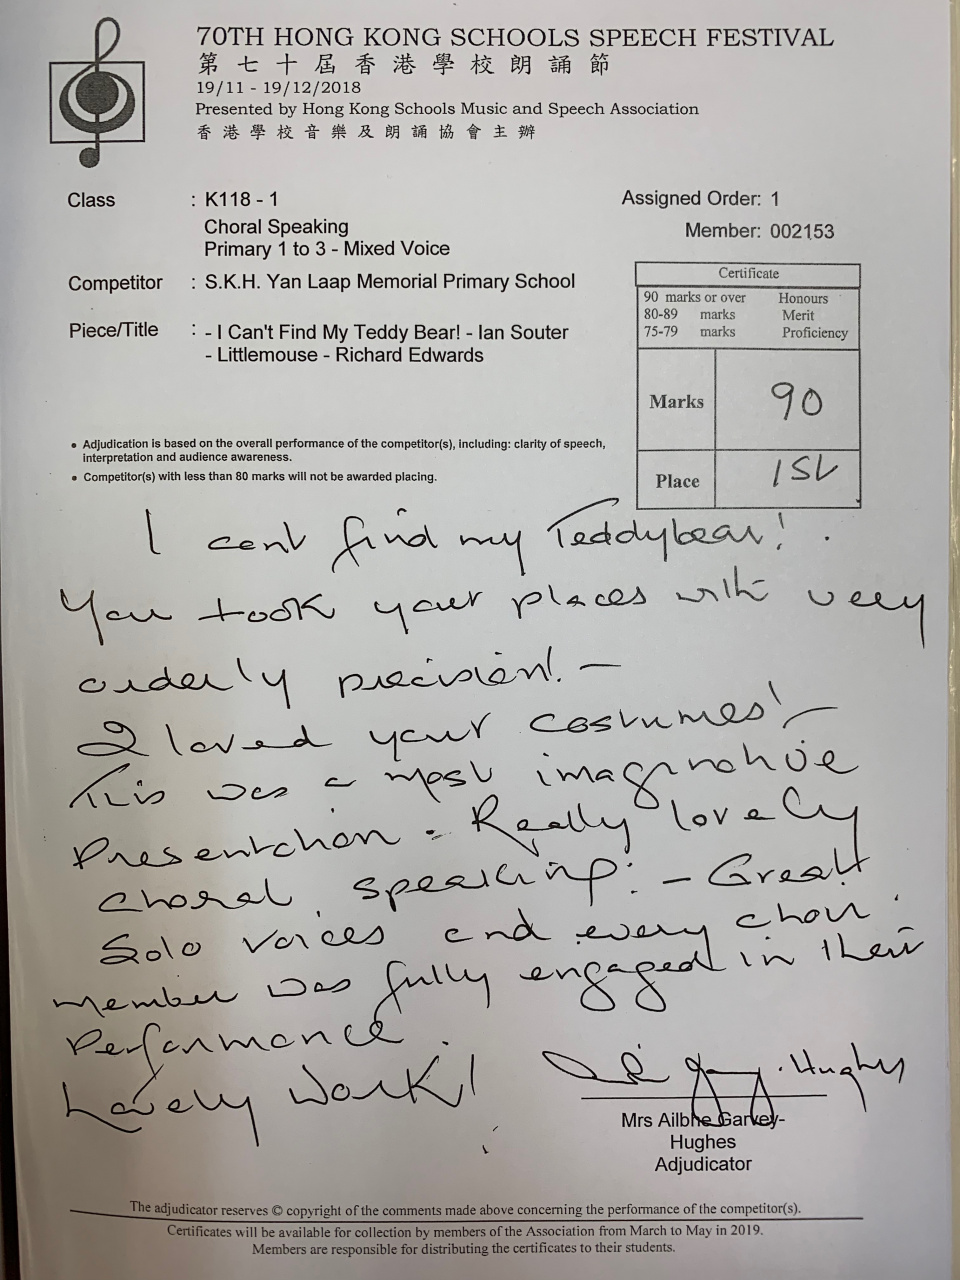 70TH HONG KONG SCHOOLS SPEECH FESTIVAL
第七十屆香港學校朗誦節
19/11 - 19/12/2018
Presented by Hong Kong Schools Music and Speech Association
香港學校音樂及朗誦協會主辦
Class : K118 - 1
Assigned Order: 1
Choral Speaking
Member: 002153
Primary 1 to 3 - Mixed Voice
Competitor : S.K.H. Yan Laap Memorial Primary School
Piece/Title : - I Can't Find My Teddy Bear! - Ian Souter
- Littlemouse - Richard Edwards
Certificate
90 marks or over Honours
80-89 marks Merit
75-79 marks Proficiency
Marks 90
Place 1st
• Adjudication is based on the overall performance of the competitor(s), including: clarity of speech,
interpretation and audience awareness.
• Competitor(s) with less than 80 marks will not be awarded placing.
I cant find my Teddybear!
You took your places with very
orderly precision! -
I loved your costumes! -
This was a most imaginative
Presentation - Really lovely
choral speaking. - Great
Solo voices and every choir
member was fully engaged in their
Performance.
Lovely Work!
Garvey-Hughes
Mrs Ailbhe Garvey-
Hughes
Adjudicator
The adjudicator reserves © copyright of the comments made above concerning the performance of the competitor(s).
Certificates will be available for collection by members of the Association from March to May in 2019.
Members are responsible for distributing the certificates to their students.